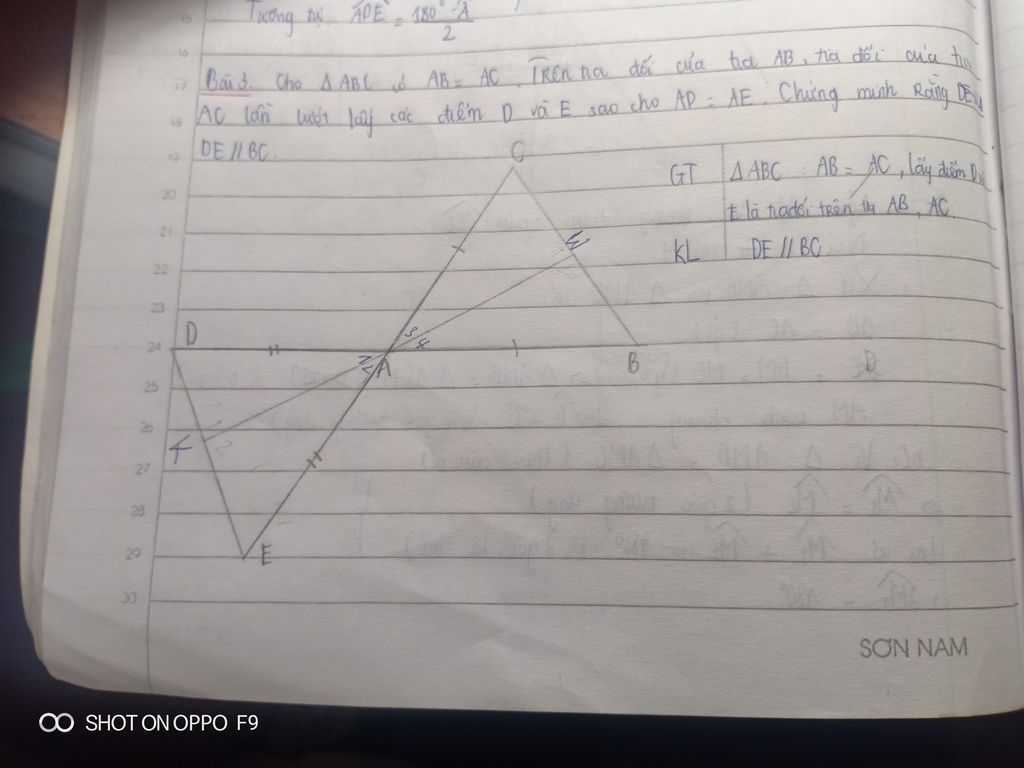 Tương tự: ADE = 180° - A
2
Bài 3. Cho Δ ABC có AB = AC. Trên tia đối của tia AB, tia đối của tia
AC lần lượt lấy các điểm D và E sao cho AD = AE. Chứng minh Rằng DE
DE // BC.
GT ΔABC : AB = AC, lấy điểm D,
E là tia đối trên tia AB, AC.
KL DE // BC
C
D
A
B
D
E
3
4
1
2
2
16
17
18
19
20
21
22
23
24
25
26
27
28
29
30
SƠN NAM
SHOT ON OPPO F9